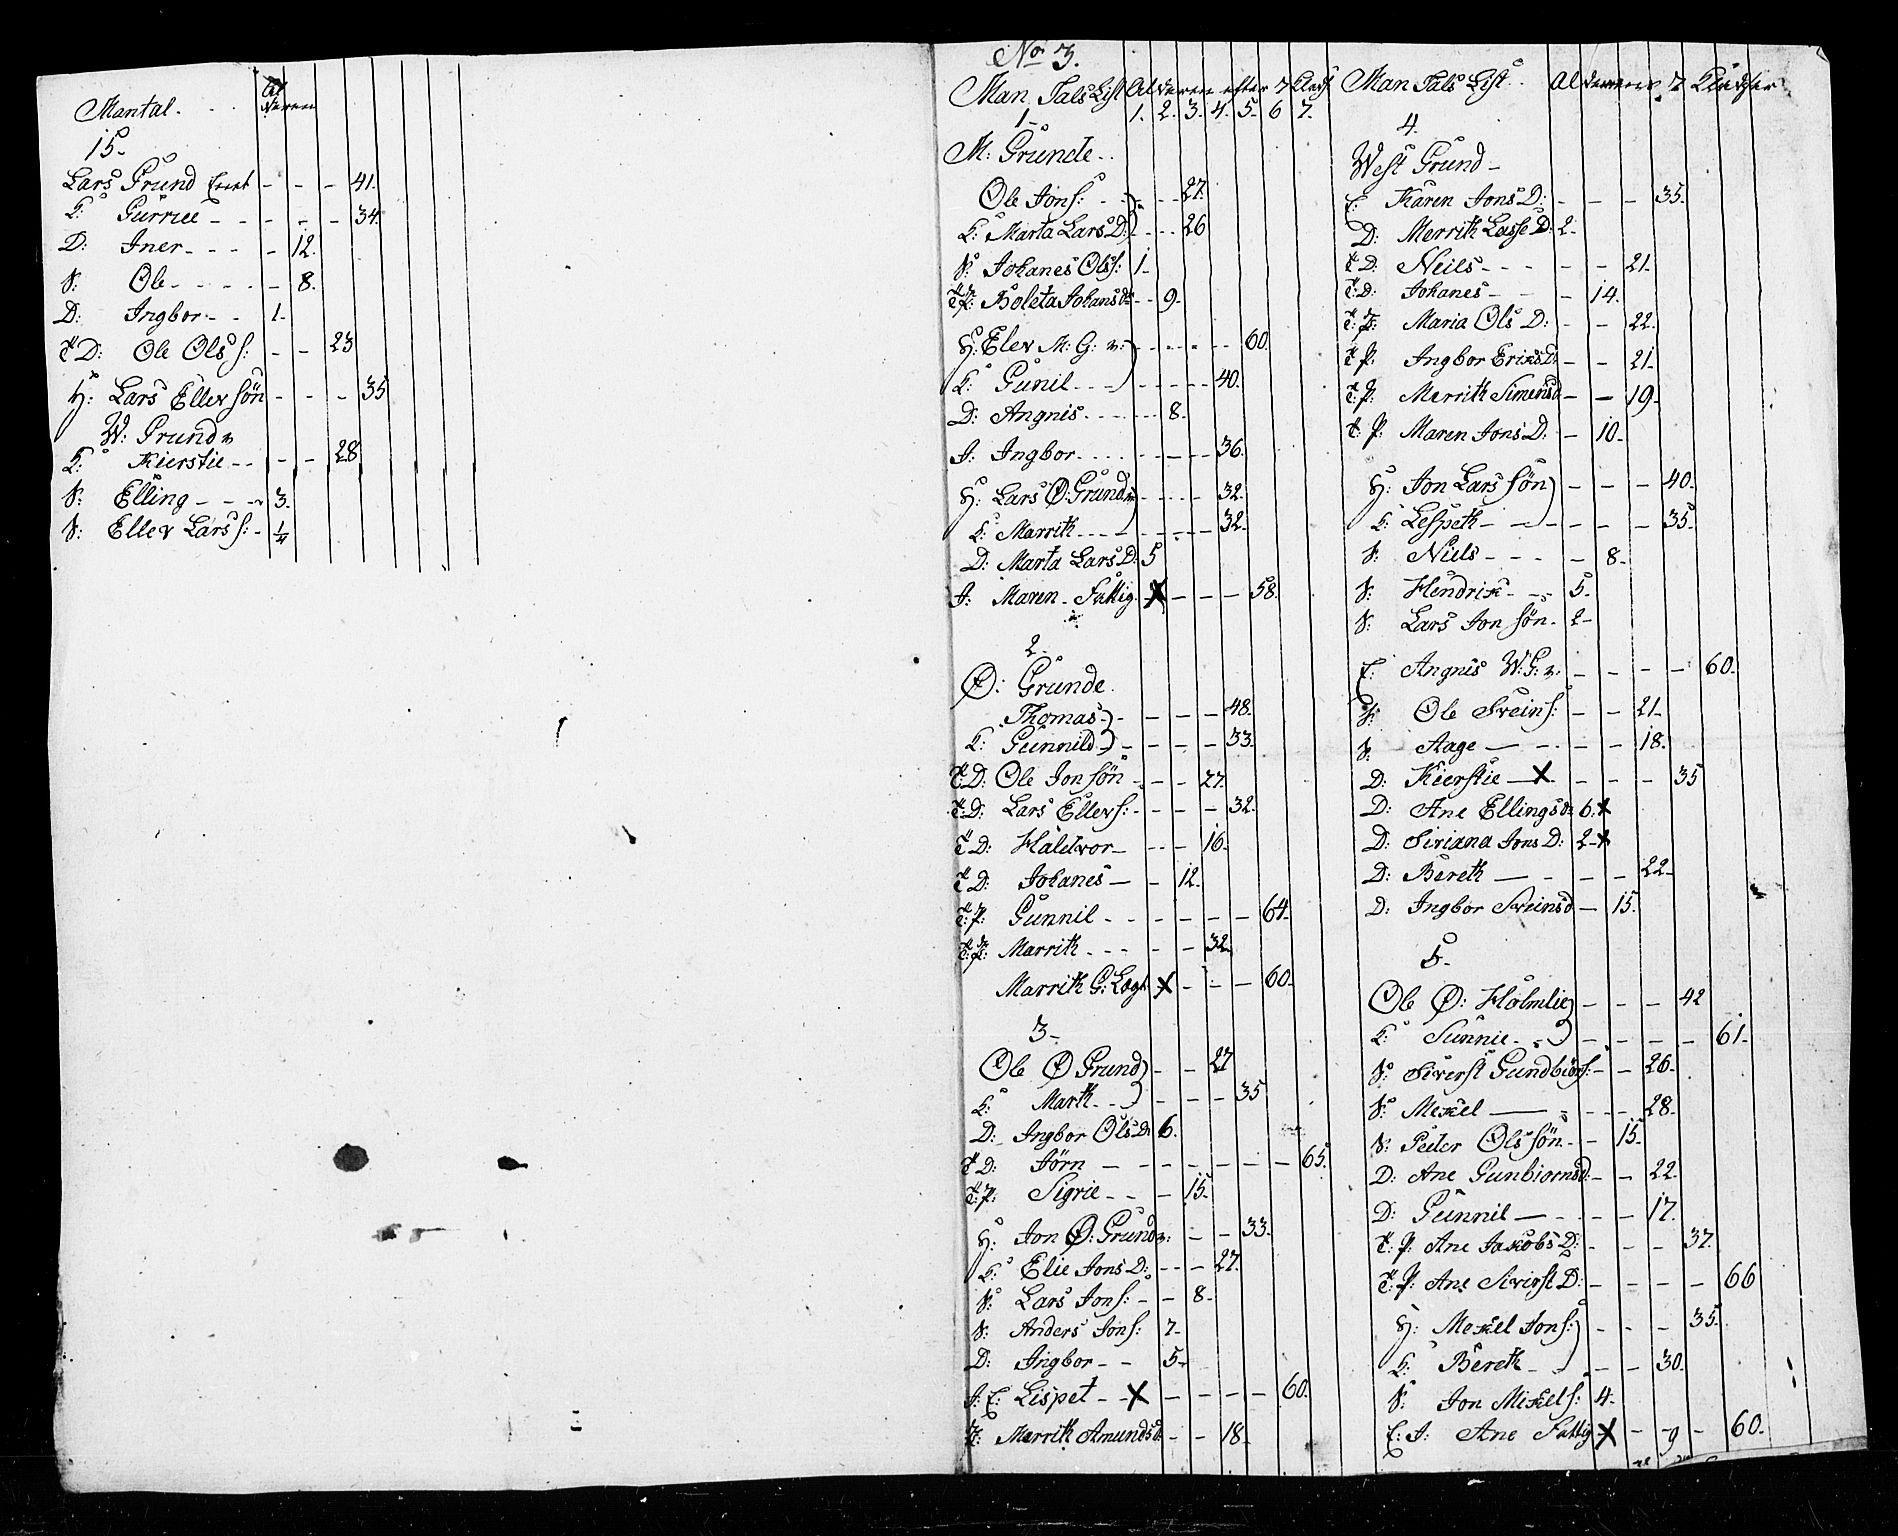 Mantal. Alderen
15.
Lars Grund - - - 41.
K: Gurrie - - - - 34.
D: Iner - - - - 12.
S: Ole - - - - - 8.
D: Ingbor - - 1.
T D: Ole Ols S: - - 23
H: Lars Eller Søn - - - 35
W: Grund
K: Kierstie - - - - 28
S: Elling - - - 3.
S: Eller Lars S: - 1/4
No 3.
Man Tals List Alderen efter 7 Class
1. 2. 3. 4. 5. 6 7.
1-
M: Grunde.
Ole Jons: - - - - 27.
K: Marta Lars D: - - - 26
S: Johanes Ols S: 1-
T: P: Boleta Johans D: - - 9-
H: Elev M: G: - - - - - 60.
K: Gunil - - - - - - - 40.
D: Angnis - - - - - 8.
I: Ingbor - - - - - - - 36.
H: Lars Ø: Grund - - - - 32.
K: Marrith - - - - - - - 32.
D: Marta Lars D: 5
I: Maren - Fattig X - - - 58.
2-
Ø: Grunde.
Thomas - - - - 48.
K: Gunnild - - - - 33.
T: D: Ole Jon Søn - - - 27.
T: D: Lars Eller S: - - - - 32.
T D: Haldvor - - - - 16.
T D: Johanes - - 12.
T: P: Gunnil - - - - - - 64.
T: P: Marrith - - - - - 32.
Marrith G: Lægd X - - - 60.
3-
Ole Ø Grund - - 27
K: Marth - - - - - 35
D: Ingbor Ols D: 6.
T D: Jørn - - - - - - - 65.
T: P: Sigrie - - - 15-
H: Jon Ø: Grund - - 33.
K: Elie Jons D: - - - 27.
S: Lars Jon S: - - 8-
S: Anders Jon S: 7-
D: Ingbor - - 5-
I: E: Lispet - X - - - - 60.
Merrith Amunds D: - - 18-
Man Tals List Alderens 7 Classer
4.
West Grund -
E: Karen Jons D: - - - 35.
D: Merrith Lasse D: 2-
T D: Neils - - - - - 21.
T: D: Johanes - - - 14.
T: P: Maria Ols D: - - 22.
T P: Ingbor Eriks D: - - 21.
T: P: Merrith Simens D - - 19-
T: P: Maren Jons D: - 10-
H: Jon Lars Søn - - - 40.
K: Lespeth - - - - - - 35.
S: Niels - - - - 8-
S: Hendrik - - - 5-
S: Lars Jon Søn - 2-
E: Angnis W: G: - - - - 60.
S: Ole Svein S: - - 21-
S: Aage - - - - - 18.
D: Kierstie - X - - - 35
D: Ane Ellings D: 6. X
D: Siriana Jons D: 2- X
D: Bereth - - - - - 22-
D: Ingbor Sveins D - 15.
5-
Ole Ø: Holmlie - - - 42
K: Sunnie - - - - - - 61.
S: Siverst Gundbiørs: - - 26-
S: Mekel - - - - - 28-
S: Peeter Ols Søn - - 15-
D: Ane Gunbiorns D: - - 22.
D: Gunnil - - - - - 17.
T: P: Ane Jakobs D: - - - 37.
T: P: Ane Siverst D: - - - - 66
H: Mekel Jon S: - - - 35.
K: Bereth - - - - 30.
S: Jon Mikel S: 4-
E: I: Ane Fattig X - - 9 - 60-